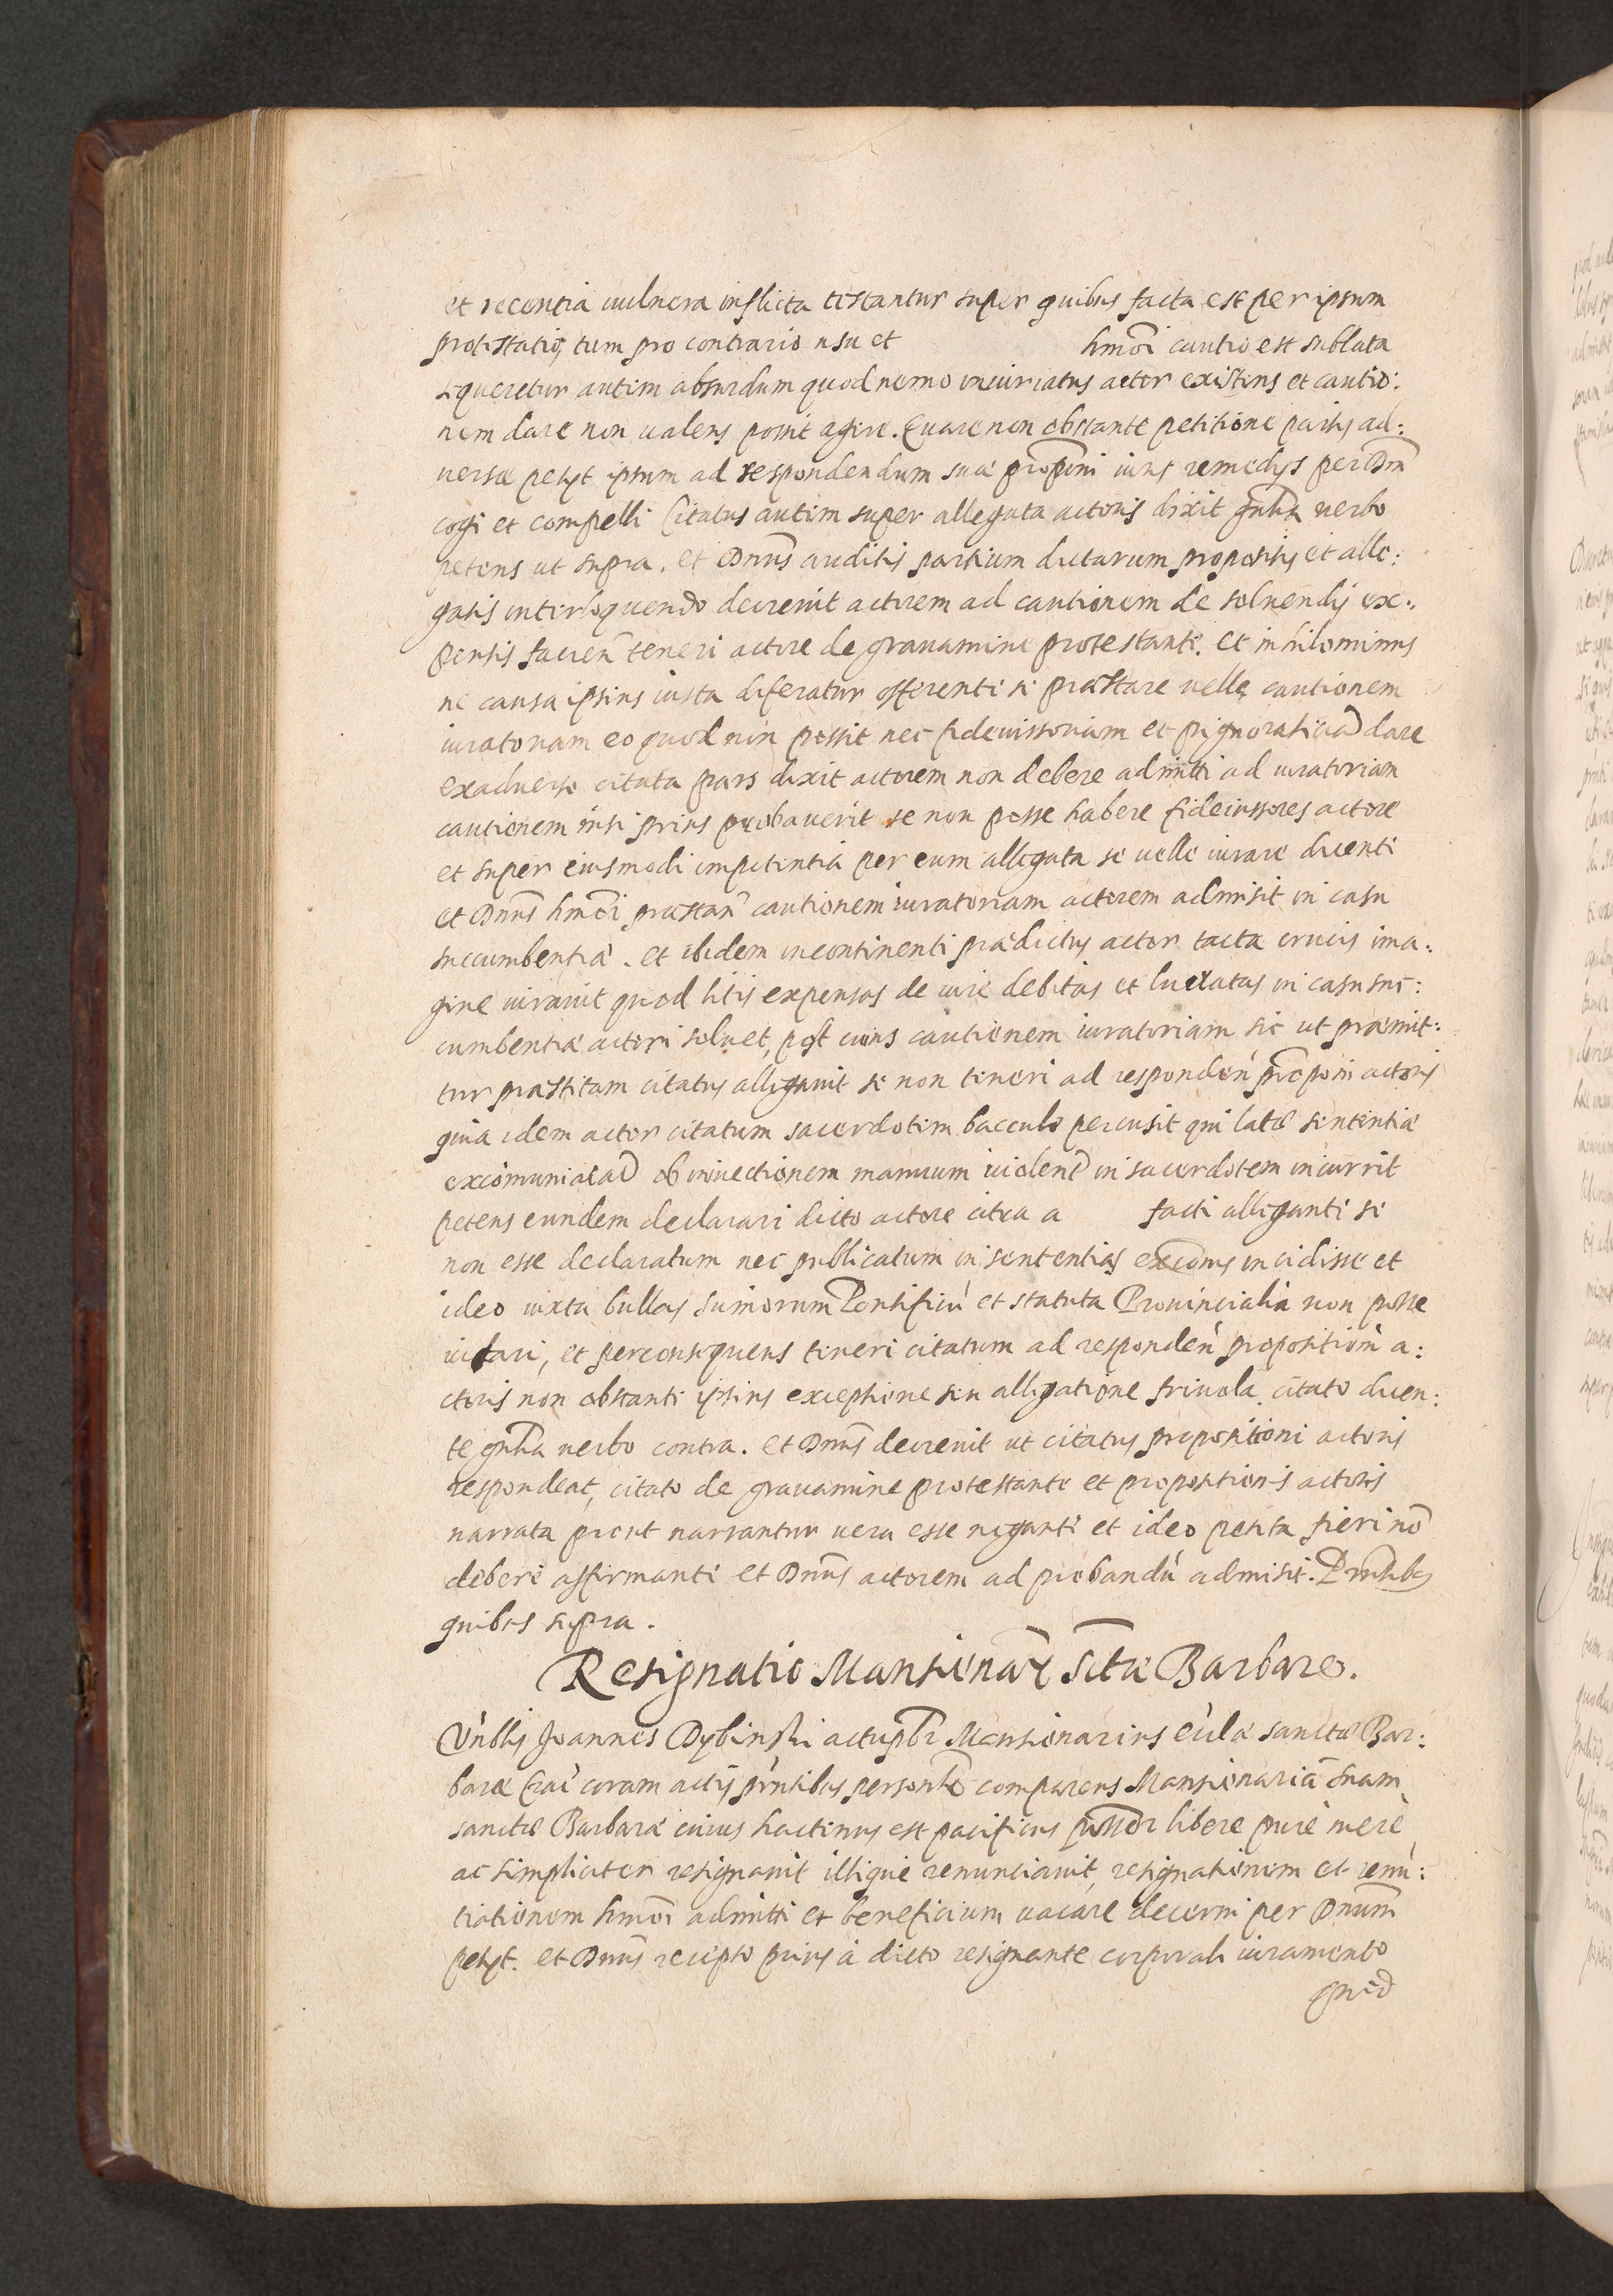 et recentia uulnera inflicta testantur super quibus facta est per ipsum
protestatio, tum pro contrario usu et hmoi cautio est sublata
Sequeretur autem absurdum quod nemo iniuriatus actor existens et cautio:
nem dare non ualens possit agere. Quare non obstante petitione partis ad:
uersæ petijt ipsum ad respondendum suæ propõni iuris remedijs per Dnm̃
cogi et compelli Citatus autem super allegata actoris dixit gñlia uerbo
petens ut supra. et Dnũs auditis partium dictarum propositis et alle:
gatis interloquendo decreuit actorem ad cautionem de soluendis ex:
pensis facien̄ teneri actore de grauamine protestante. et nihilominus
ne causa ipsius iusta diferatur offerente se præstare uelle cautionem
iuratoriam eo quod non possit nec fideiussoriam et pignoraticiã dare
exaduerso citata pars dixit actorem non debere admitti ad iuratoriam
cautionem nisi prius probauerit se non posse habere fideiussores actore
et super eiusmodi impotentia per eum allegata se uelle iurare dicente
et Dnũs hmõi præstan̄ cautionem iuratoriam actorem admisit in casu
succumbentiæ. et ibidem incontinenti prædictus actor tacta crucis ima:
gine iurauit quod litis expensas de iure debitas et luctatas in casu suc:
cumbentiæ actori soluet, post cuius cautionem iuratoriam sic ut præmit:
tur præstitam citatus allegauit se non teneri ad responden̄ prõponi actoris
quia idem actor citatum sacerdotem bacculo percusit qui latæ sententiæ
excõmunicaõ ob iniectionem manuum uiolent̃ in sacerdotem incurrit
petens eundem declarari dicto actore citra a facti allegante se
non esse declaratum nec publicatum in sententias excõnis incidisse et
ideo iuxta bullas sumorum Pontificũ et statuta Prouincialia non posse
uitari, et perconsequens teneri citatum ad responden̄ propositioni a:
ctoris non obstante ipsius exceptione seu allegatione friuola citato dicen:
te gñlia uerbo contra. et Dnũs decreuit ut citatus propositioni actoris
respondeat, citato de grauamine protestante et propositionis actoris
narrata prout narrantur uera esse negante et ideo petita fieri nõ
debere affirmante et Dnũs actorem ad probandũ admisit. Prñtibus
quibus supra.
Resignatio Mansionaр Sctæ Barbare.
Vñblis Joannes Dybinski actuplr̃ Mansionarius eclæ sanctæ Bar:
baræ Craĉ coram actis pñtibus personlr̃ comparens Mansionariã suam
sanctæ Barbaræ cuius hactenus est pacificus possor libere pure mere
ac simpliciter resignauit illique renunciauit, resignationem et renũ:
tiationem hmõi admitti et beneficium uacare decerni per Dnũm
petijt. et Dnũs recepto prius à dicto resignante corporali iuramento
quod